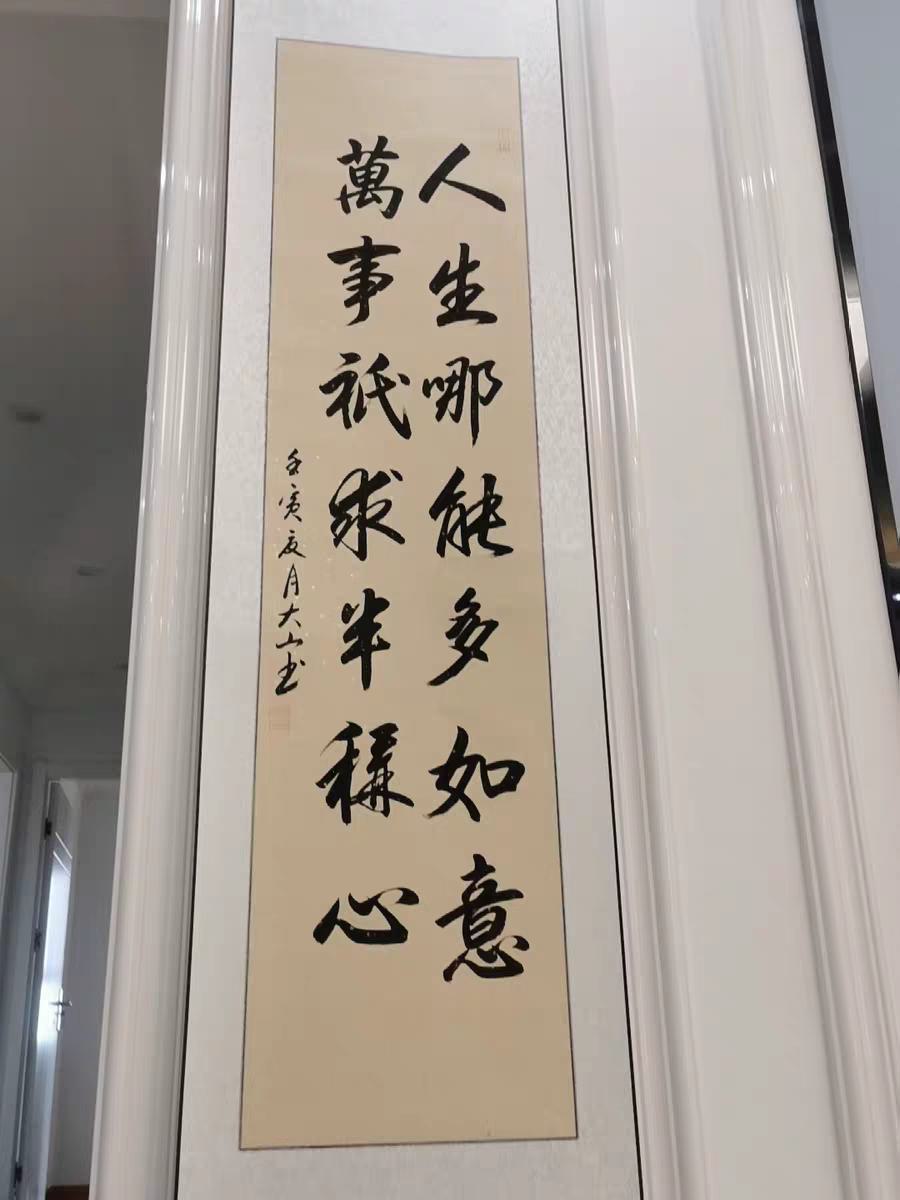 人生哪能多如意
萬事祇求半稱心
壬寅夏月大山书